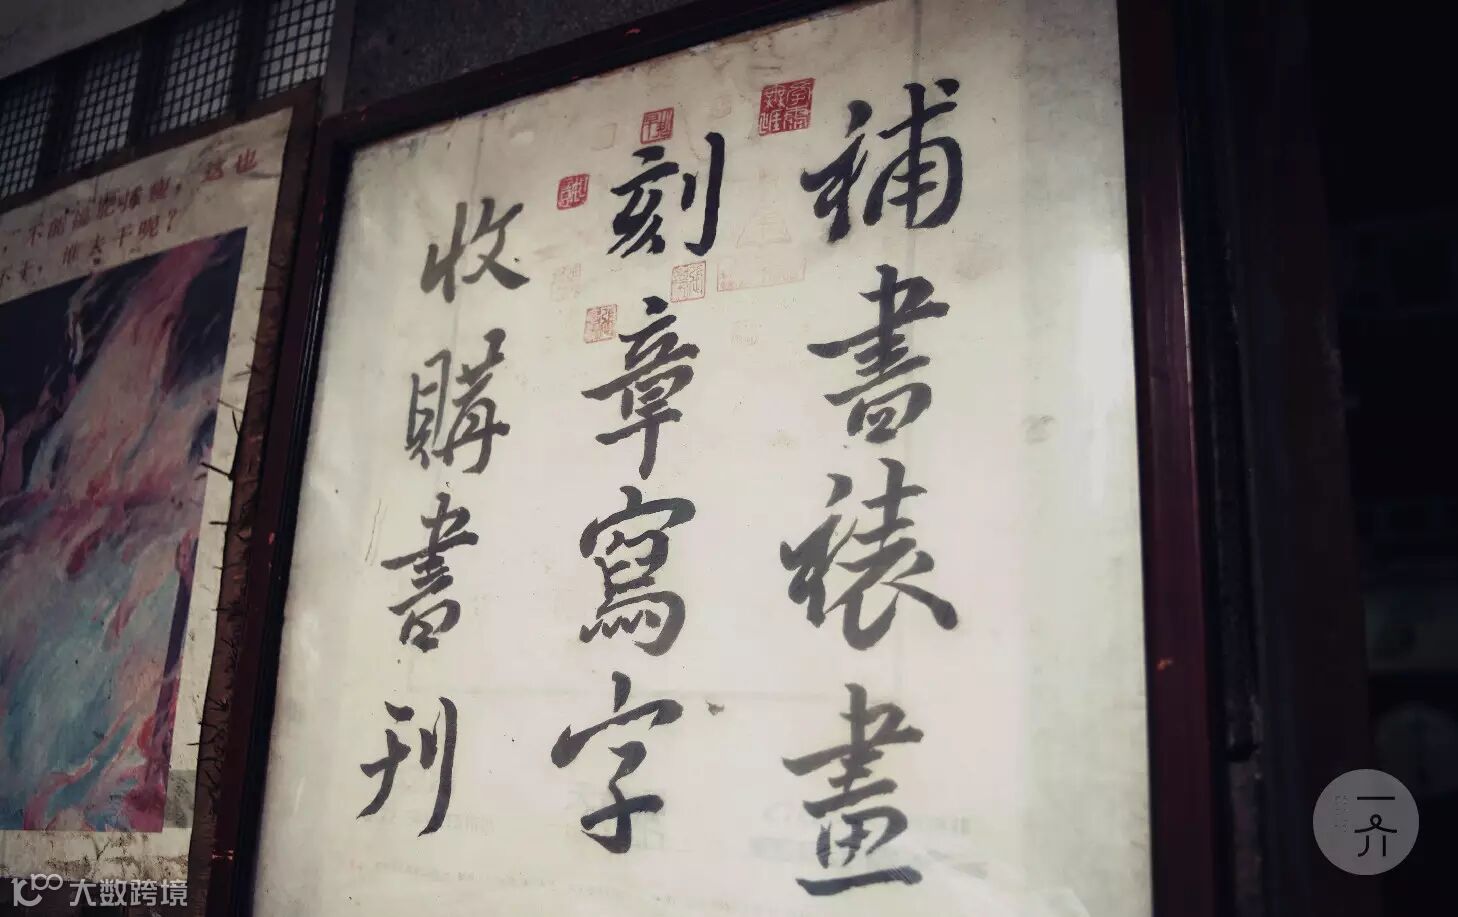 補書裱畫
刻章寫字
收購書刊
這也
不走，谁去干呢？
一介
大数跨境